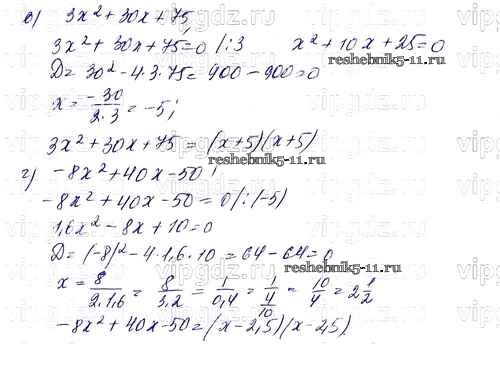 в) 3x² + 30x + 75
3x² + 30x + 75 = 0 /:3     x² + 10x + 25 = 0
D = 30² - 4·3·75 = 900 - 900 = 0
x = -30/2·3 = -5;
3x² + 30x + 75 = (x+5)(x+5)
г) -8x² + 40x - 50
-8x² + 40x - 50 = 0 /:(-5)
1,6x² - 8x + 10 = 0
D = (-8)² - 4·1,6·10 = 64 - 64 = 0
x = 8/2·1,6 = 8/3,2 = 1/0,4 = 1/(4/10) = 10/4 = 2 1/2
-8x² + 40x - 50 = (x - 2,5)(x - 2,5)
reshebnik5-11.ru
reshebnik5-11.ru
reshebnik5-11.ru
vipgdz.ru